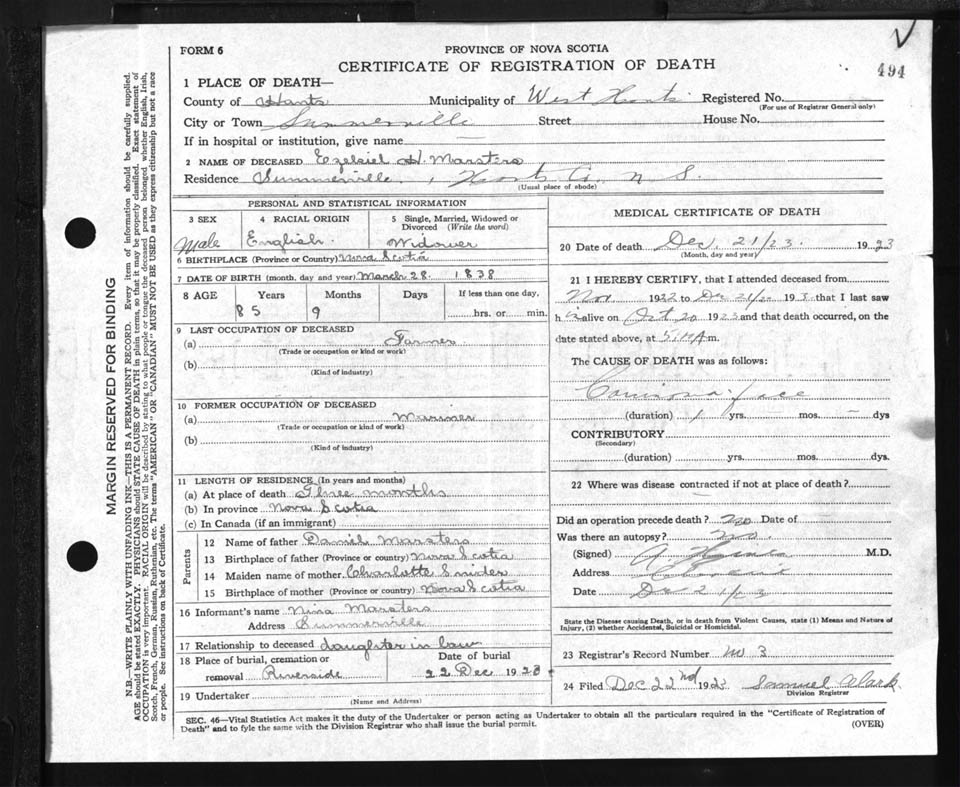 494
FORM 6
PROVINCE OF NOVA SCOTIA
CERTIFICATE OF REGISTRATION OF DEATH
1 PLACE OF DEATH—
County of Hants Municipality of West Hants Registered No.
(For use of Registrar General only)
City or Town Summerville Street House No.
If in hospital or institution, give name
2 NAME OF DECEASED Ezekiel H. Marsters
Residence Summerville, Hants Co. N S.
(Usual place of abode)
PERSONAL AND STATISTICAL INFORMATION
3 SEX 4 RACIAL ORIGIN 5 Single, Married, Widowed or Divorced (Write the word)
Male English. Widower
6 BIRTHPLACE (Province or Country) Nova Scotia
7 DATE OF BIRTH (month, day and year) March 28. 1838
8 AGE Years Months Days If less than one day,
85 9 hrs. or min.
9 LAST OCCUPATION OF DECEASED
(a) Farmer
(Trade or occupation or kind or work)
(b)
(Kind of industry)
10 FORMER OCCUPATION OF DECEASED
(a) Mariner
(Trade or occupation or kind of work)
(b)
(Kind of industry)
11 LENGTH OF RESIDENCE (In years and months)
(a) At place of death Three months
(b) In province Nova Scotia
(c) In Canada (if an immigrant)
Parents
12 Name of father Daniel Marsters
13 Birthplace of father (Province or country) Nova Scotia
14 Maiden name of mother Charlotte Snider
15 Birthplace of mother (Province or country) Nova Scotia
16 Informant's name Nina Marsters
Address Summerville
17 Relationship to deceased daughter in law
18 Place of burial, cremation or Date of burial
removal Riverside 22 Dec 1923
19 Undertaker
(Name and Address)
MEDICAL CERTIFICATE OF DEATH
20 Date of death Dec, 21/23. 1923
(Month, day and year)
21 I HEREBY CERTIFY, that I attended deceased from
Nov 1922 to Dec 21/23 193 that I last saw
h alive on Oct 20 1923 and that death occurred, on the
date stated above, at m.
The CAUSE OF DEATH was as follows:
face
(duration) 1 yrs. — mos. — dys
CONTRIBUTORY
(Secondary)
(duration) yrs. mos. dys.
22 Where was disease contracted if not at place of death?
Did an operation precede death? no Date of
Was there an autopsy? no.
(Signed) M.D.
Address
Date Dec 21/23
State the Disease causing Death, or in death from Violent Causes, state (1) Means and Nature of
Injury, (2) whether Accidental, Suicidal or Homicidal.
23 Registrar's Record Number 3
24 Filed Dec 22nd 1923 Samuel Clark.
Division Registrar
SEC. 46—Vital Statistics Act makes it the duty of the Undertaker or person acting as Undertaker to obtain all the particulars required in the "Certificate of Registration of
Death" and to fyle the same with the Division Registrar who shall issue the burial permit.
(OVER)
MARGIN RESERVED FOR BINDING
N.B.—WRITE PLAINLY WITH UNFADING INK—THIS IS A PERMANENT RECORD. Every item of information should be carefully supplied.
AGE should be stated EXACTLY. PHYSICIANS should STATE CAUSE OF DEATH in plain terms, so that it may be properly classified. Exact statement of
OCCUPATION is very important. RACIAL ORIGIN will be described by stating to what people or tongue the deceased person belonged, whether English, Irish,
Scotch, French, German, Russian, Ruthenian, etc. The terms "AMERICAN" OR "CANADIAN" MUST NOT BE USED as they express citizenship but not a race
or people. See instructions on back of Certificate.